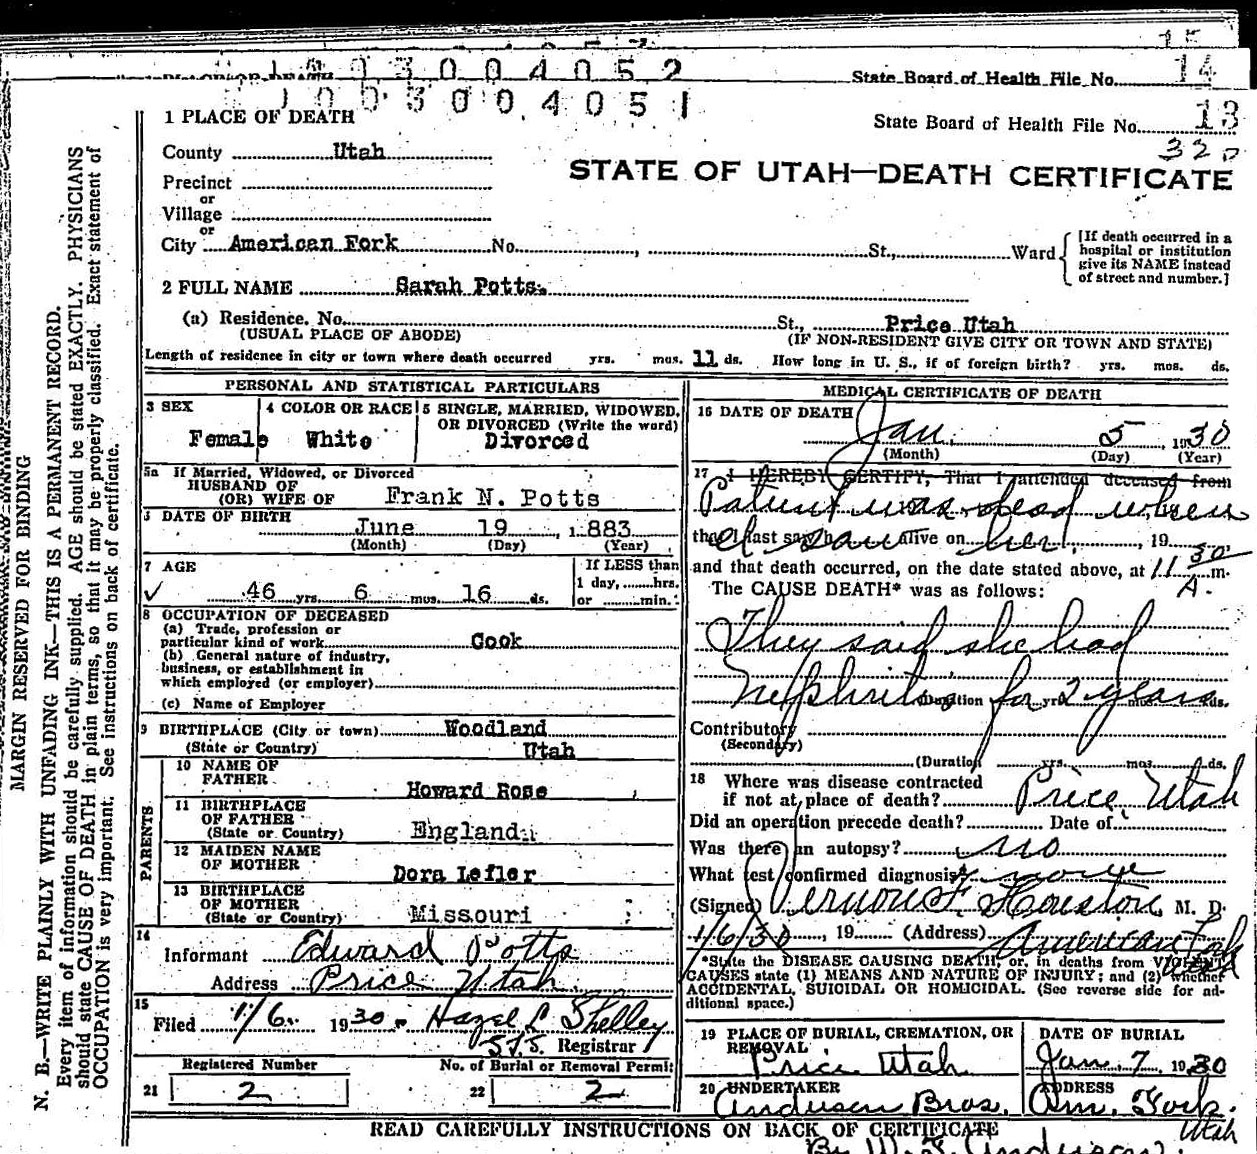 1003004052
State Board of Health File No. 14
1003004051
1 PLACE OF DEATH
State Board of Health File No. 13
320
County Utah
STATE OF UTAH—DEATH CERTIFICATE
Precinct
or
Village
or
City American Fork No. , St., Ward
[If death occurred in a
hospital or institution
give its NAME instead
of street and number.]
2 FULL NAME Sarah Potts.
(a) Residence. No. St., Price Utah
(USUAL PLACE OF ABODE) (IF NON-RESIDENT GIVE CITY OR TOWN AND STATE)
Length of residence in city or town where death occurred yrs. mos. 11 ds. How long in U. S., if of foreign birth? yrs. mos. ds.
MARGIN RESERVED FOR BINDING
N. B.—WRITE PLAINLY WITH UNFADING INK—THIS IS A PERMANENT RECORD.
Every item of information should be carefully supplied. AGE should be stated EXACTLY. PHYSICIANS
should state CAUSE OF DEATH in plain terms, so that it may be properly classified. Exact statement of
OCCUPATION is very important. See instructions on back of certificate.
PERSONAL AND STATISTICAL PARTICULARS
3 SEX 4 COLOR OR RACE 5 SINGLE, MARRIED, WIDOWED,
OR DIVORCED (Write the word)
Female White Divorced
5a If Married, Widowed, or Divorced
HUSBAND OF
(OR) WIFE OF Frank N. Potts
DATE OF BIRTH
June 19 , 1883
(Month) (Day) (Year)
7 AGE If LESS than
1 day, hrs.
✓ 46 yrs. 6 mos. 16 ds. or min.
8 OCCUPATION OF DECEASED
(a) Trade, profession or
particular kind of work Cook
(b) General nature of industry,
business, or establishment in
which employed (or employer)
(c) Name of Employer
9 BIRTHPLACE (City or town) Woodland
(State or Country) Utah
PARENTS
10 NAME OF
FATHER Howard Rose
11 BIRTHPLACE
OF FATHER
(State or Country) England
12 MAIDEN NAME
OF MOTHER Dora Lefler
13 BIRTHPLACE
OF MOTHER
(State or Country) Missouri
14
Informant Edward Potts
Address Price Utah
15
Filed 1/6. 1930. Hazel L Shelley
Registrar
Registered Number No. of Burial or Removal Permit
21 2 22 2
MEDICAL CERTIFICATE OF DEATH
16 DATE OF DEATH
Jan. 5 , 1930
(Month) (Day) (Year)
17 I HEREBY CERTIFY, That I attended deceased from
Patient was dead when
that I last saw h alive on , 19
I saw her.
and that death occurred, on the date stated above, at 11 30 A. m.
The CAUSE DEATH* was as follows:
They said she had
Nephritis for 2 years
(Duration yrs. mos. ds.
Contributory
(Secondary)
(Duration yrs. mos. ds.
18 Where was disease contracted
if not at place of death? Price Utah
Did an operation precede death? Date of
Was there an autopsy? no
What test confirmed diagnosis? none
(Signed) Vernon F. Houston, M. D.
1/6/30, 19 (Address) American Fork
Utah
*State the DISEASE CAUSING DEATH, or, in deaths from VIOLENT
CAUSES state (1) MEANS AND NATURE OF INJURY; and (2) whether
ACCIDENTAL, SUICIDAL OR HOMICIDAL. (See reverse side for ad-
ditional space.)
19 PLACE OF BURIAL, CREMATION, OR
REMOVAL
Price Utah
DATE OF BURIAL
Jan. 7 1930
20 UNDERTAKER
Andersen Bros.
ADDRESS
Am. Fork.
Utah
READ CAREFULLY INSTRUCTIONS ON BACK OF CERTIFICATE